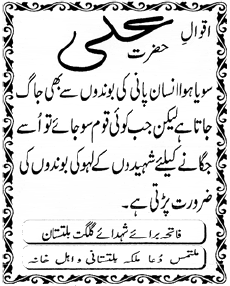 اقوالِ
حضرت علی
سویا ہوا انسان پانی کی بوندوں سے بھی جاگ
جاتا ہے لیکن جب کوئی قوم سو جائے تو اُسے
جگانے کیلئے شہیدوں کے لہو کی بوندوں کی
ضرورت پڑتی ہے۔
فاتحہ برائے شہدائے گلگت بلتستان
ملتمسِ دُعا ملکہ بلتستانی و اہل خانہ